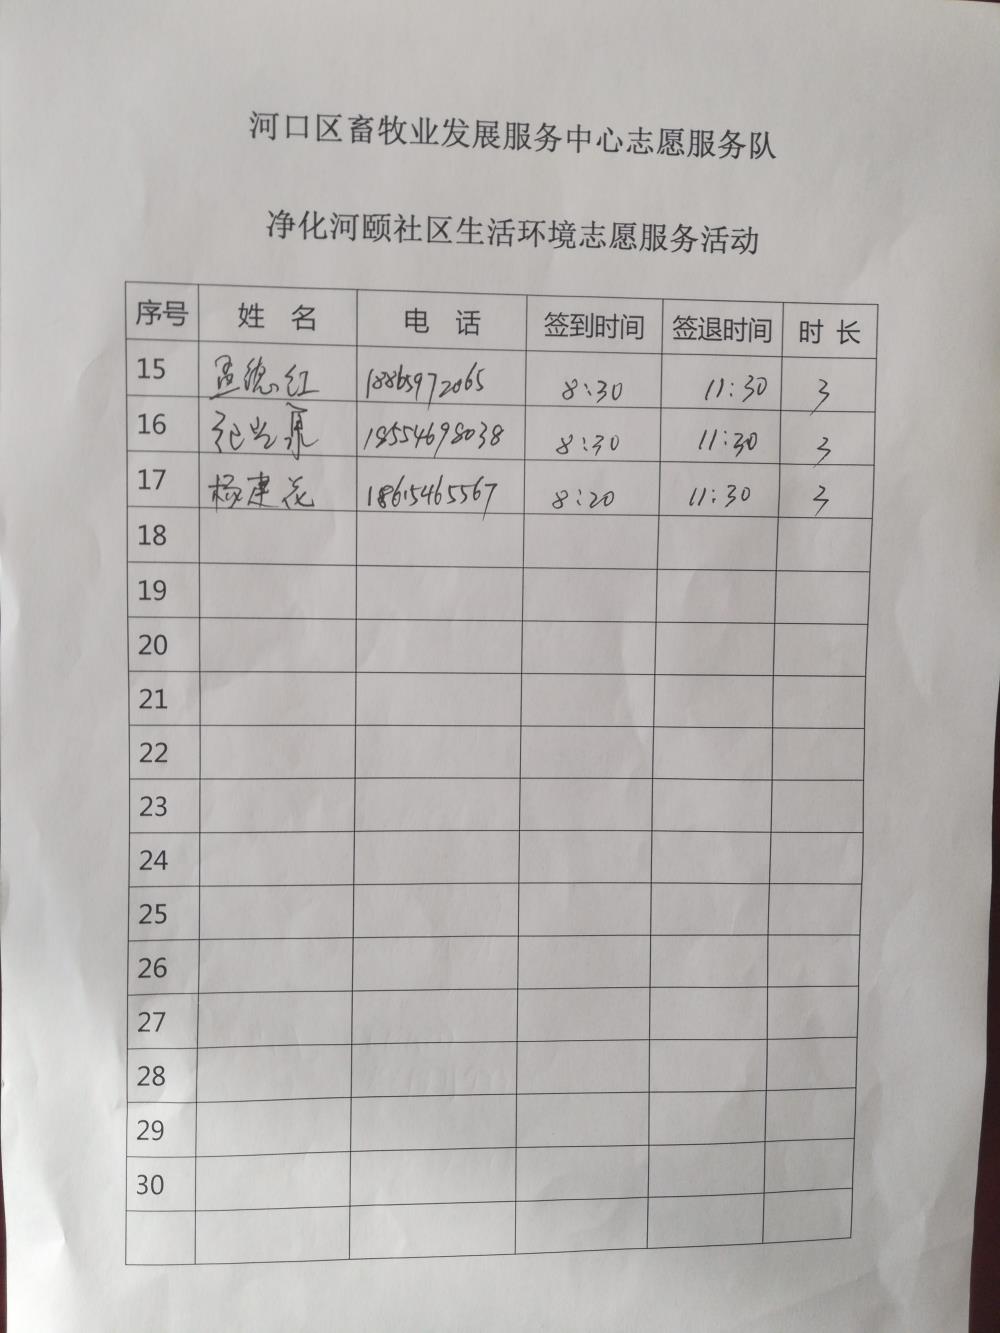 河口区畜牧业发展服务中心志愿服务队
净化河颐社区生活环境志愿服务活动
序号 姓 名 电 话 签到时间 签退时间 时 长
15 孟德红 18865972065 8:30 11:30 3
16 18554698038 8:30 11:30 3
17 杨建花 18615465567 8:20 11:30 3
18
19
20
21
22
23
24
25
26
27
28
29
30